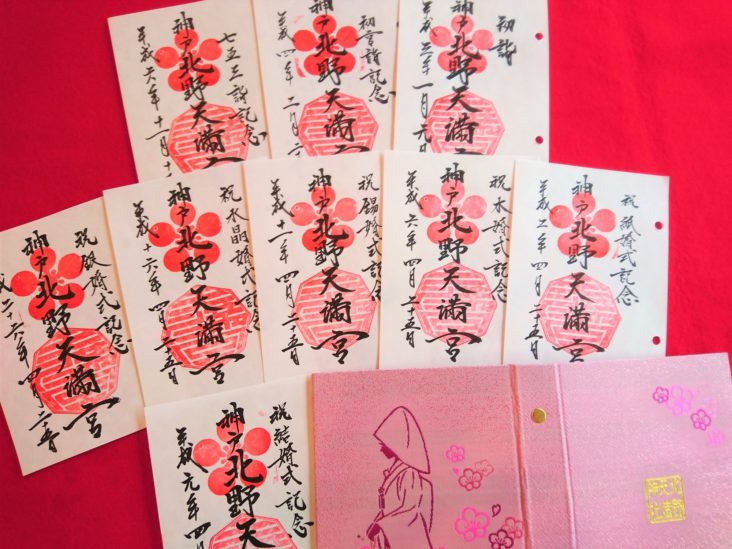 七五三詣記念
神戸北野天満宮
平成六年十一月
初宮詣記念
神戸北野天満宮
平成四年二月
初詣
神戸北野天満宮
平成三年一月元
祝殿婚式記念
神戸北野天満宮
成二十六年四月二十五
祝水晶婚式記念
神戸北野天満宮
平成十六年四月二十五月
祝錫婚式記念
神戸北野天満宮
平成十一年四月二十五月
祝木婚式記念
神戸北野天満宮
平成六年四月二十五月
祝紙婚式記念
神戸北野天満宮
平成二年四月二十五月
祝結婚式記念
神戸北野天
平成元年四